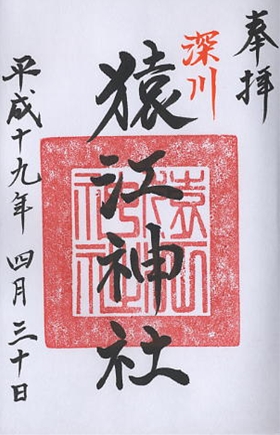 奉拝
深川
猿江神社
平成十九年 四月三十日